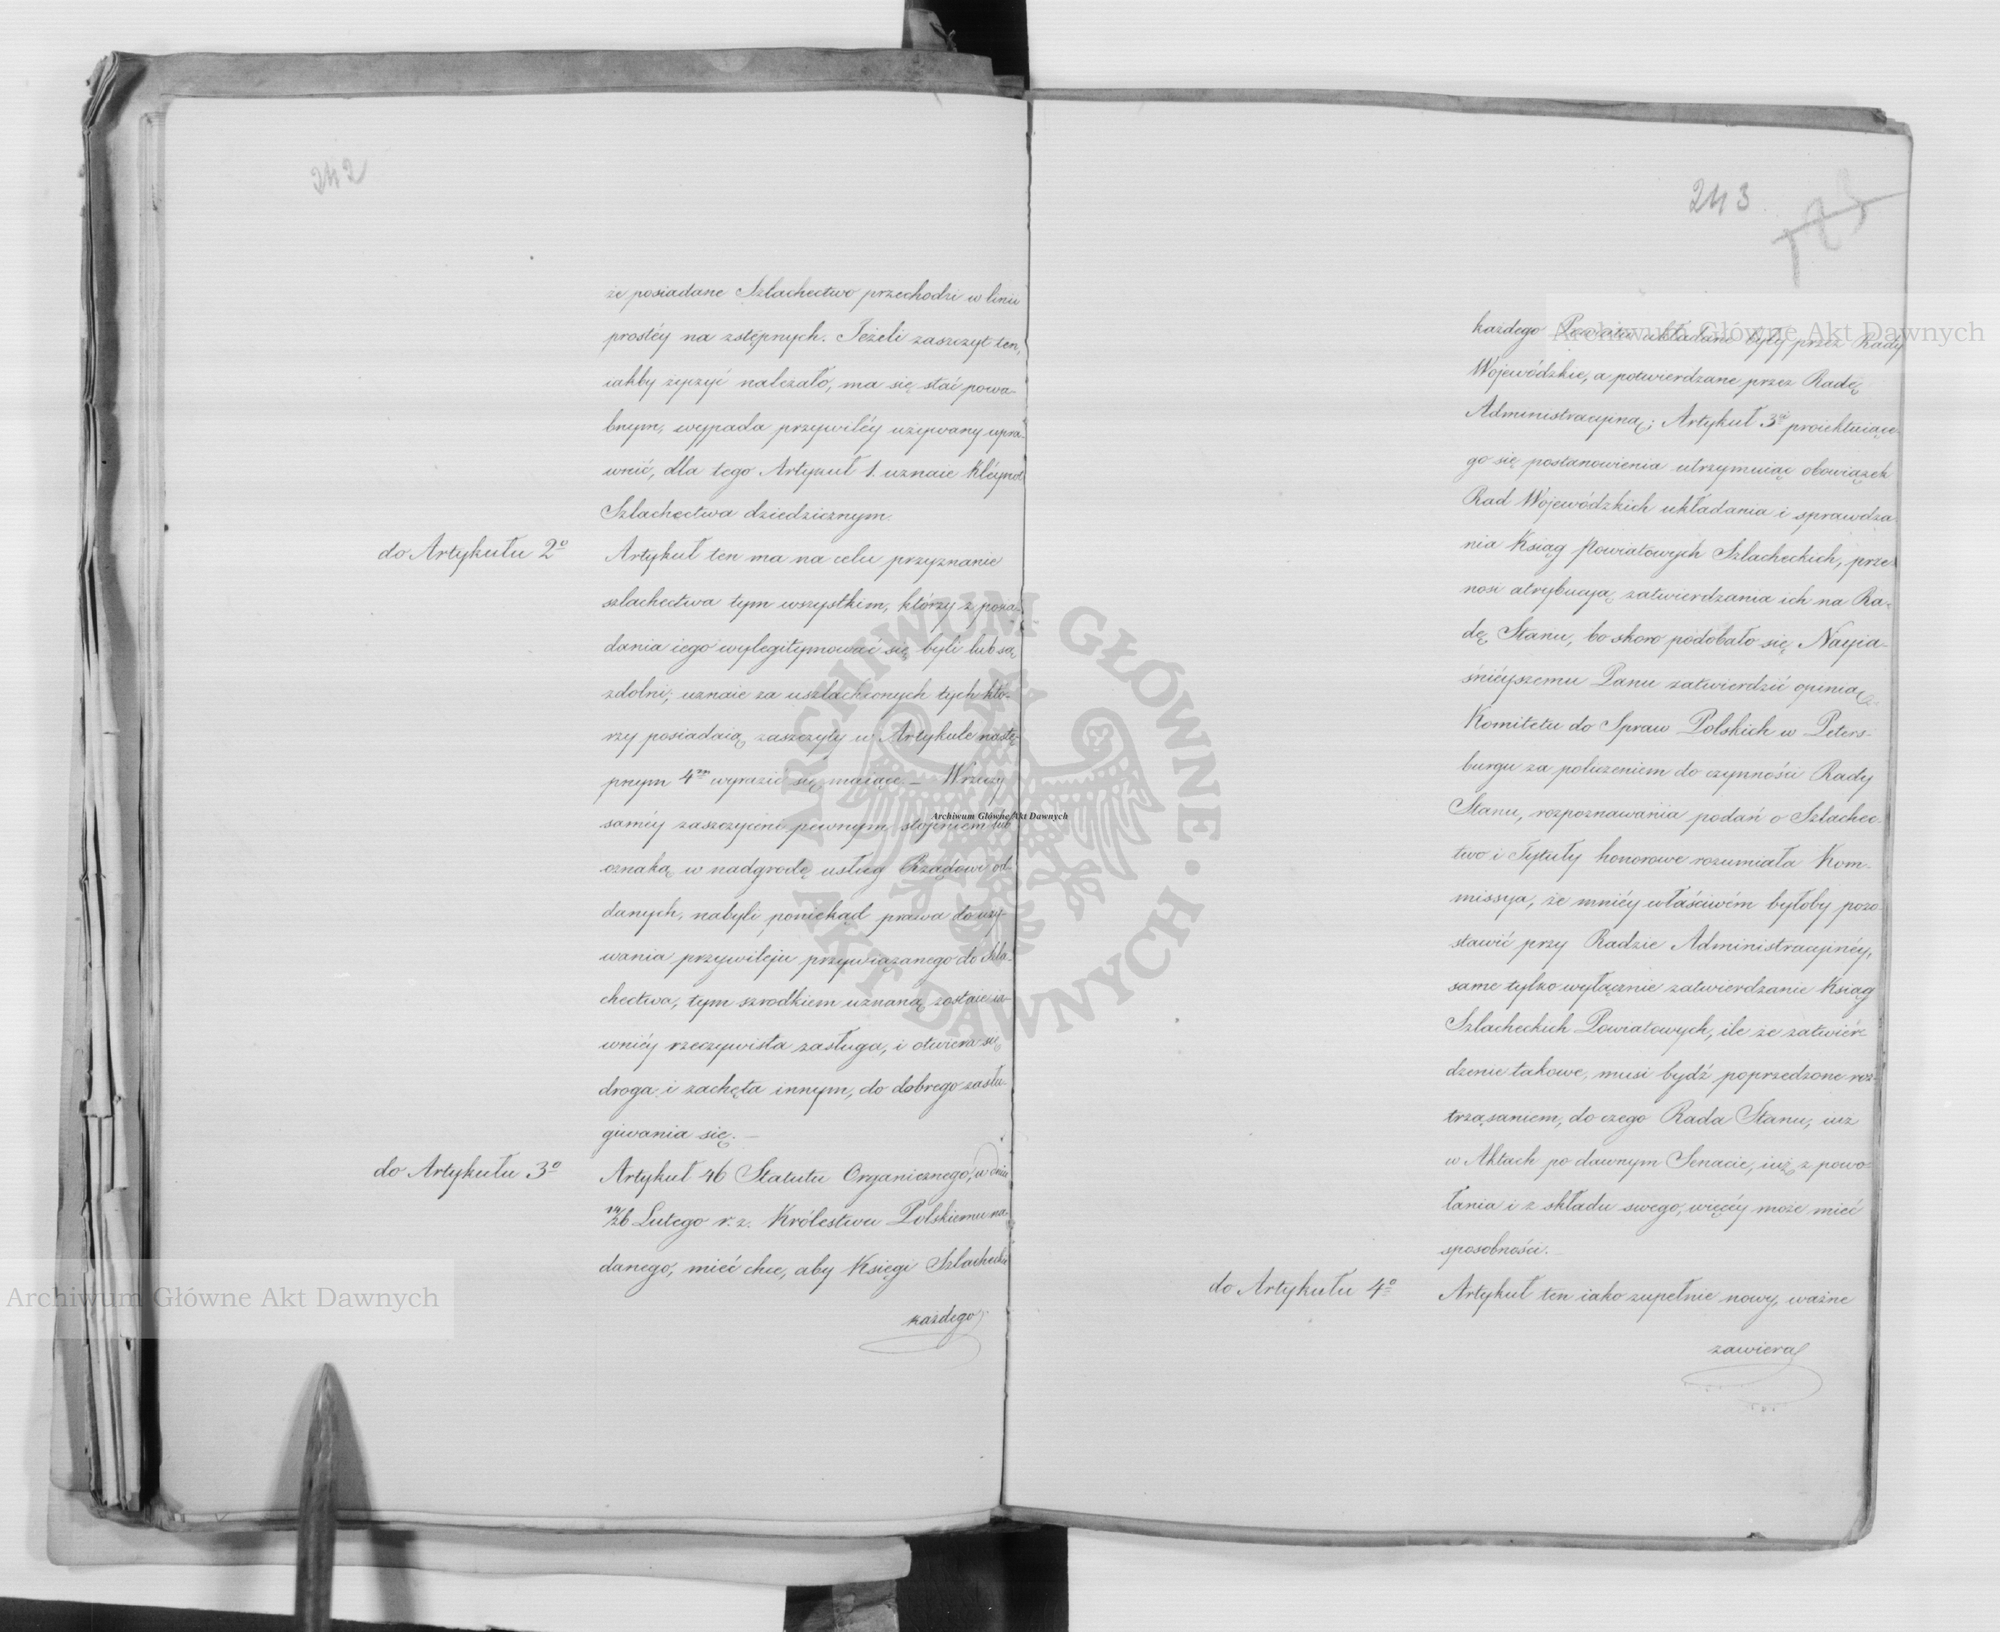 242
że posiadane Szlachectwo przechodzi w linii
prostéy na zstępnych. Jeżeli zaszczyt ten,
iakby życzyć należało, ma się stać powa-
bnym, wypada przywiléy używany upra-
wnić, dla tego Artykuł 1. uznaie Kléynot
Szlachectwa dziedzicznym.
do Artykułu 2º
Artykuł ten ma na celu przyznanie
szlachectwa tym wszystkim, którzy z posia-
dania iego wylegitymować się byli lub są
zdolni, uznaie za uszlachconych tych któ-
rzy posiadaią zaszczyty w Artykule nastę-
pnym 4m wyrazić się maiące. — W rzeczy
saméy zaszczyceni pewnym stopniem lub
oznaką w nadgrodę usług Rządowi od-
danych, nabyli poniekąd prawa do uży-
wania przywileju przywiązanego do Szla-
chectwa, tym szrodkiem uznaną zostaie ia-
wniéy rzeczywista zasługa, i otwiera się
droga i zachęta innym, do dobrego zasłu-
giwania się. —
do Artykułu 3º
Artykuł 46 Statutu Organicznego, w dniu
14/26 Lutego r. z. Królestwu Polskiemu na-
danego, mieć chce, aby Księgi Szlacheckie
każdego
243
każdego Powiatu układane były przez Rady
Wojewódzkie, a potwierdzane przez Radę
Administracyjną; Artykuł 3ci proiektuiące-
go się postanowienia utrzymuiąc obowiązek
Rad Wojewódzkich układania i sprawdza-
nia Ksiąg Powiatowych Szlacheckich, prze-
nosi atrybucyą zatwierdzania ich na Ra-
dę Stanu, bo skoro podobało się Nayia-
śnieyszemu Panu zatwierdzić opinią
Komitetu do Spraw Polskich w Peters-
burgu za poluczeniem do czynności Rady
Stanu, rozpoznawania podań o Szlachec-
two i Tytuły honorowe rozumiała Kom-
missya, że mniéy właściwém byłoby pozo-
stawić przy Radzie Administracyjnéy,
same tylko wyłącznie zatwierdzanie Ksiąg
Szlacheckich Powiatowych, ile że zatwier-
dzenie takowe, musi bydź poprzedzone roz-
trząsaniem, do czego Rada Stanu, iuż
w Aktach po dawnym Senacie, iuż z powo-
łania i z składu swego, więcéy może mieć
sposobności. —
do Artykułu 4º
Artykuł ten iako zupełnie nowy, ważne
zawiera
Archiwum Główne Akt Dawnych
Archiwum Główne Akt Dawnych
Archiwum Główne Akt Dawnych
ARCHIWUM GŁÓWNE · AKT DAWNYCH ·